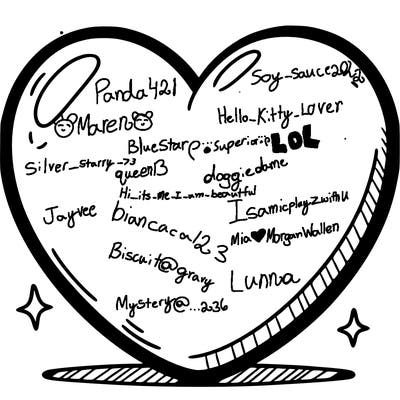 Panda421
Soy_sauce2012
Maren
Hello_Kitty_Lover
BlueStar
superior
LOL
Silver_starry_73
queenB
doggiedame
Hi_its_me_I_am_beautful
Jayvee
biancaca123
Isamicplayzwithu
Mia🖤MorganWallen
Biscuit@gravy
Lunna
Mystery@...2036